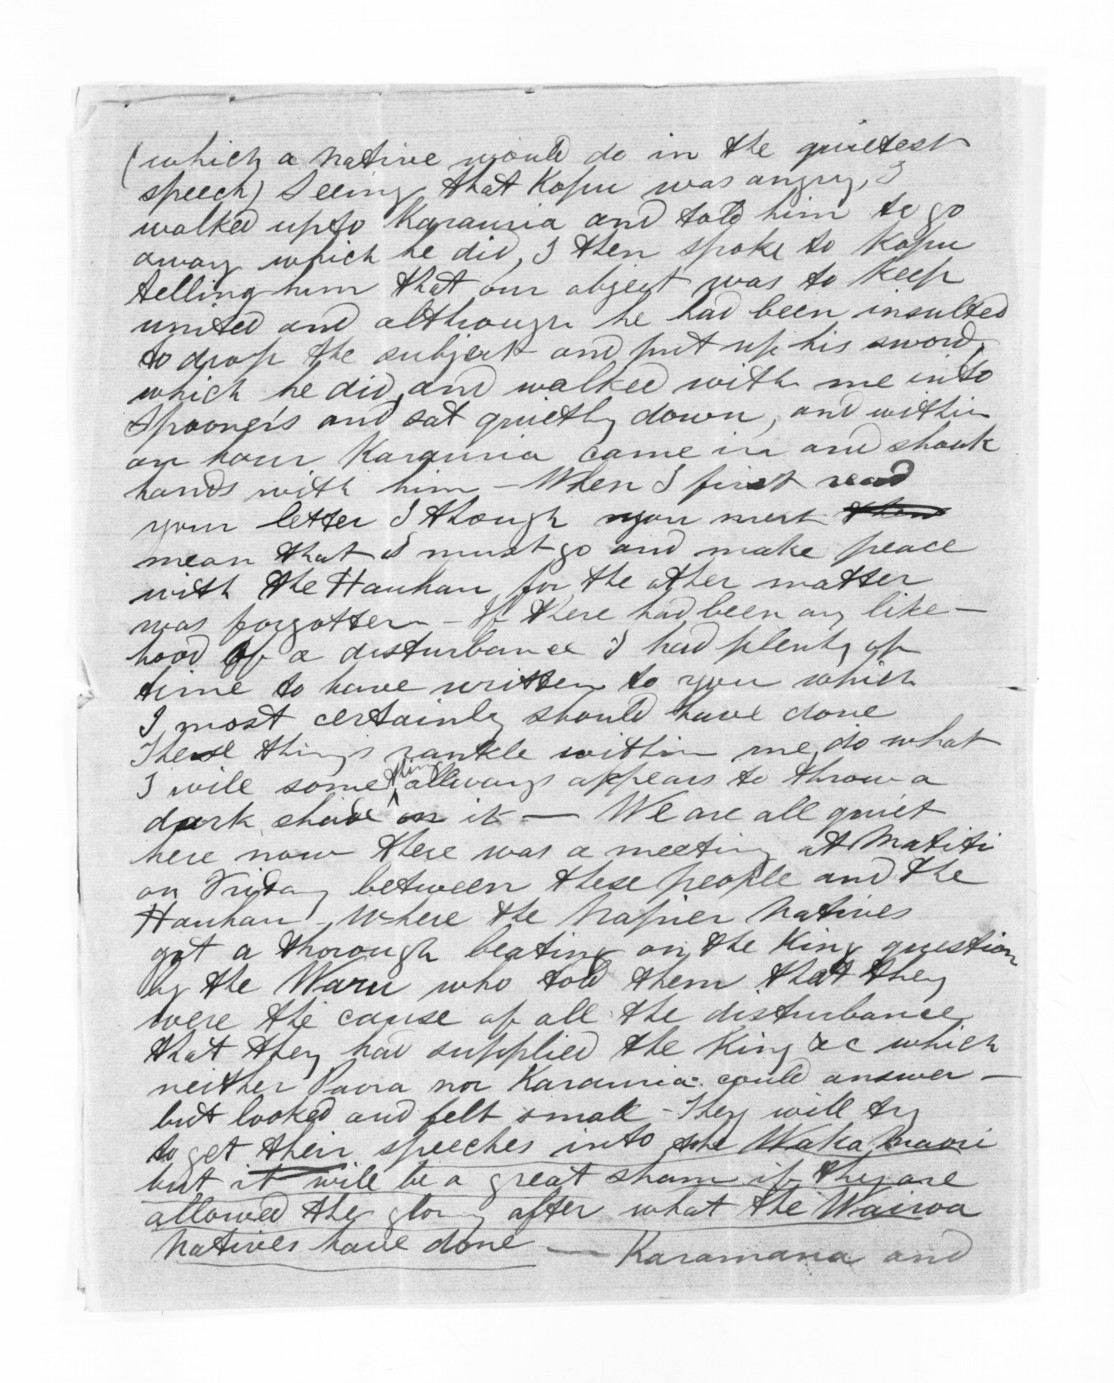 (which a native would do in the quietest
speech) Seeing that Kopu was angry, I
walked up to Karauria and told him to go
away which he did, I then spoke to Kopu
telling him that our object was to keep
united and although he had been insulted
to drop the subject and put up his sword,
which he did, and walked with me into
Spooner's and sat quietly down, and within
an hour Karauria came in and shook
hands with him - When I first read
your letter I though you must them
mean that I must go and make peace
with the Hauhau, for the other matter
was forgotten - If there had been any like-
hood of a disturbance I had plenty of
time to have written to you which
I most certainly should have done
These things rankle within me, do what
I will something allways appears to throw a
dark shade on it - We are all quiet
here now there was a meeting at Matiti
on Friday between these people and the
Hauhau, Where the Napier Natives
got a thorough beating on the King question
by the Waru who told them that they
were the cause of all the disturbance
that they had supplied the King &c which
neither Paora nor Karauria could answer -
but looked and felt small - They will try
to get their speeches into the Waka Maori
but it will be a great sham if they are
allowed the glory after what the Wairoa
Natives have done - Karamana and